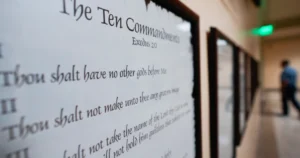 The Ten Commandments
Exodus 20
I
Thou shalt have no other gods before me
II
Thou shalt not make unto thee any graven image
III
Thou shalt not take the name of the Lord thy God
will not hold him guiltless